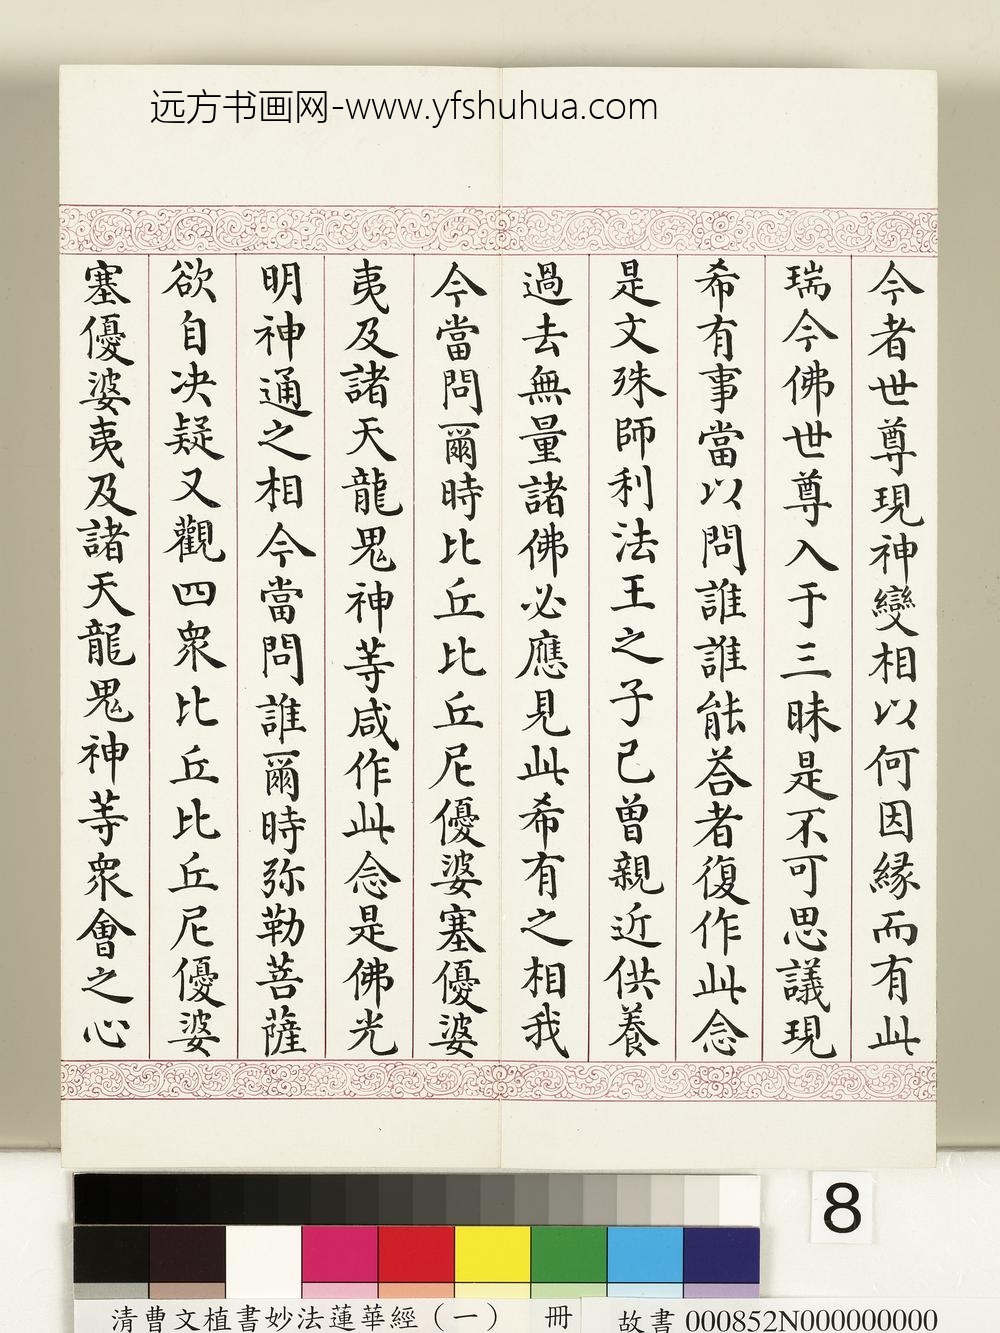 远方书画网-www.yfshuhua.com
今者世尊現神變相以何因縁而有此
瑞今佛世尊入于三昧是不可思議現
希有事當以問誰誰能荅者復作此念
是文殊師利法王之子已曾親近供養
過去無量諸佛必應見此希有之相我
今當問爾時比丘比丘尼優婆塞優婆
夷及諸天龍鬼神等咸作此念是佛光
明神通之相今當問誰爾時弥勒菩薩
欲自决疑又觀四衆比丘比丘尼優婆
塞優婆夷及諸天龍鬼神等衆會之心
8
清曹文植書妙法蓮華經(一) 冊 故書 000852N000000000